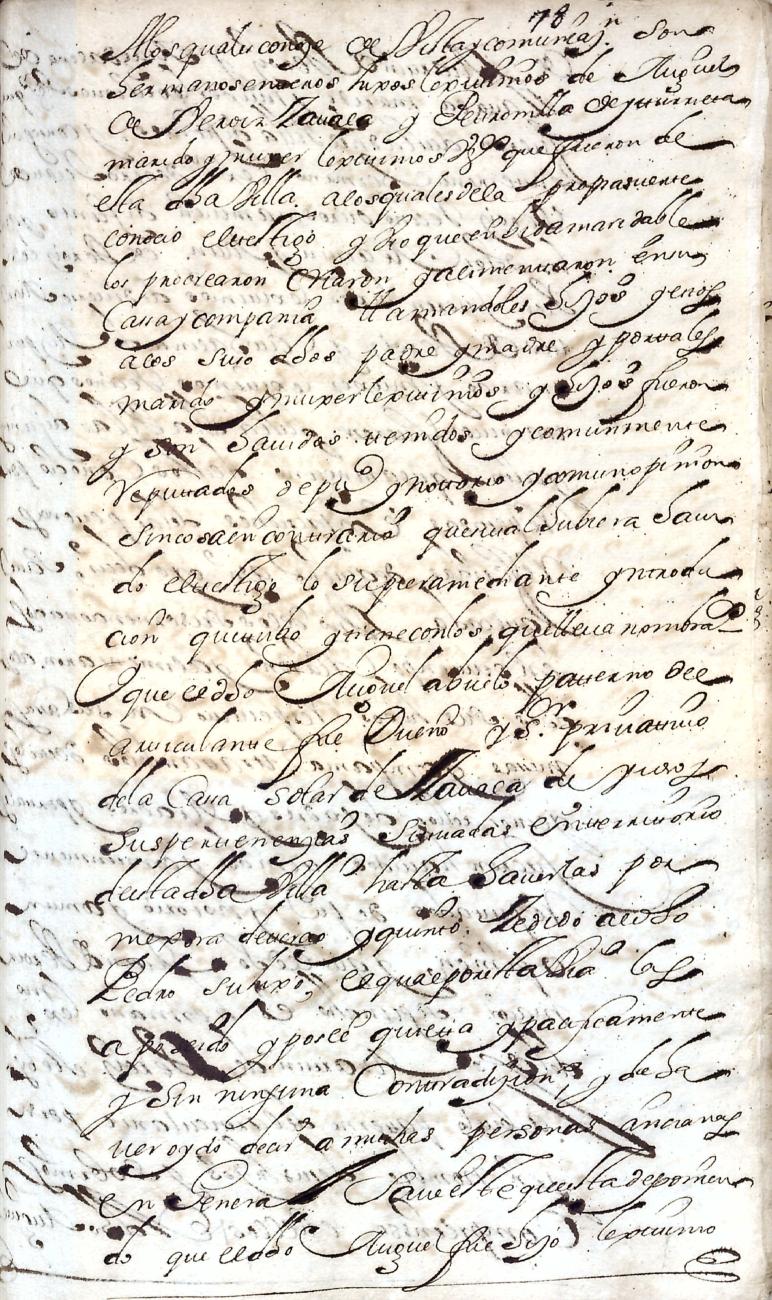 78
Alos quales conoze de Vista y comunicaz.n son
hermanos enteros hixos lexitimos de Miguel
de Zavala y Petronilla de Yturrieta
marido y muxer lexitimos Vz.os que fueron de
esta dha Villa. alos quales dela propia suerte
conocio el testigo y vio que en bida maridable
los procrearon criaron y alimentaron en su
Cassa y compania llamandoles hijos y ellos
a los suso dhos padre y madre y por tales
marido y muxer lexitimos y hijos fueron
y son havidos tenidos y comunmente
Reputados de pu.co y nottorio y comun opinion
sin cosa en contrario que si tal hubiera havi
do el testigo lo supiera mediante yntrodu
cion que tubo y tiene con los que lleva nombrados
Y que el dho Miguel abuelo paterno del
articulante fue Dueño y S.r privativo
dela Cassa solar de Zavala de yuso y
sus pertenencias situadas en territorio
de esta dha Villa hasta haverlas por
mexora de tercio y quinto Zedido al dho
Pedro su hixo, el qual por esta via las
a poseido y posee quieta y pacificamente
y sin ninguna Contradizion, y de ha
ver oydo decir a muchas personas ancianas
en General save este que esta deponien
do que el dho Miguel fue hijo lexitimo